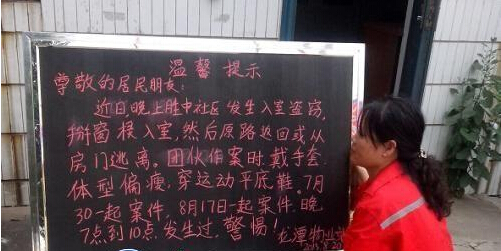 温馨提示
尊敬的居民朋友:
近日晚上胜中社区发生入室盗窃,
掰窗模入室,然后原路返回或从
房门逃离。团伙作案时戴手套
体型偏瘦,穿运动平底鞋。7月
30一起案件,8月17日一起案件,晚
7点到10点发生过,警惕!龙潭物业站